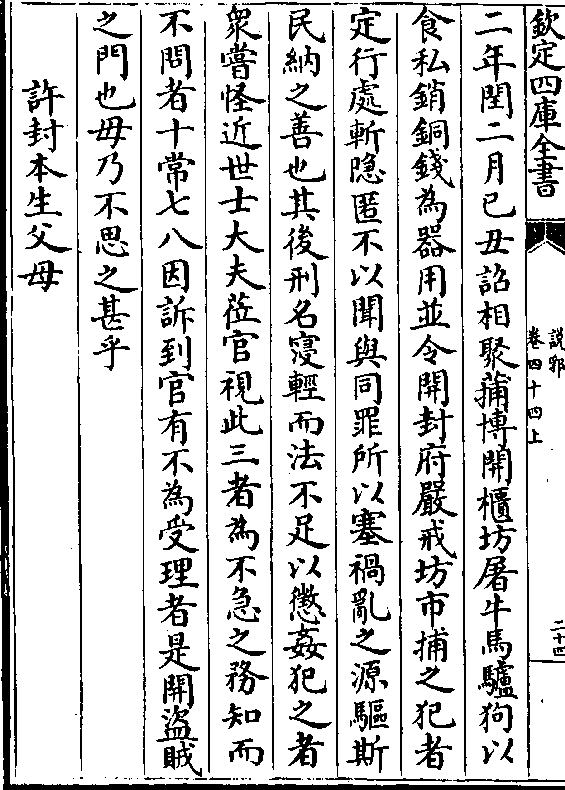 欽定四庫全書
説郛
卷四十四上
二十四
二年閏二月已丑詔相聚蒱博開櫃坊屠牛馬驢狗以
食私銷銅錢為器用並令開封府嚴戒坊市捕之犯者
定行處斬隠匿不以聞與同罪所以塞禍亂之源驅斯
民納之善也其後刑名寖輕而法不足以懲姦犯之者
衆嘗怪近世士大夫莅官視此三者為不急之務知而
不問者十常七八因訴到官有不為受理者是開盜賊
之門也毋乃不思之甚乎
許封本生父母